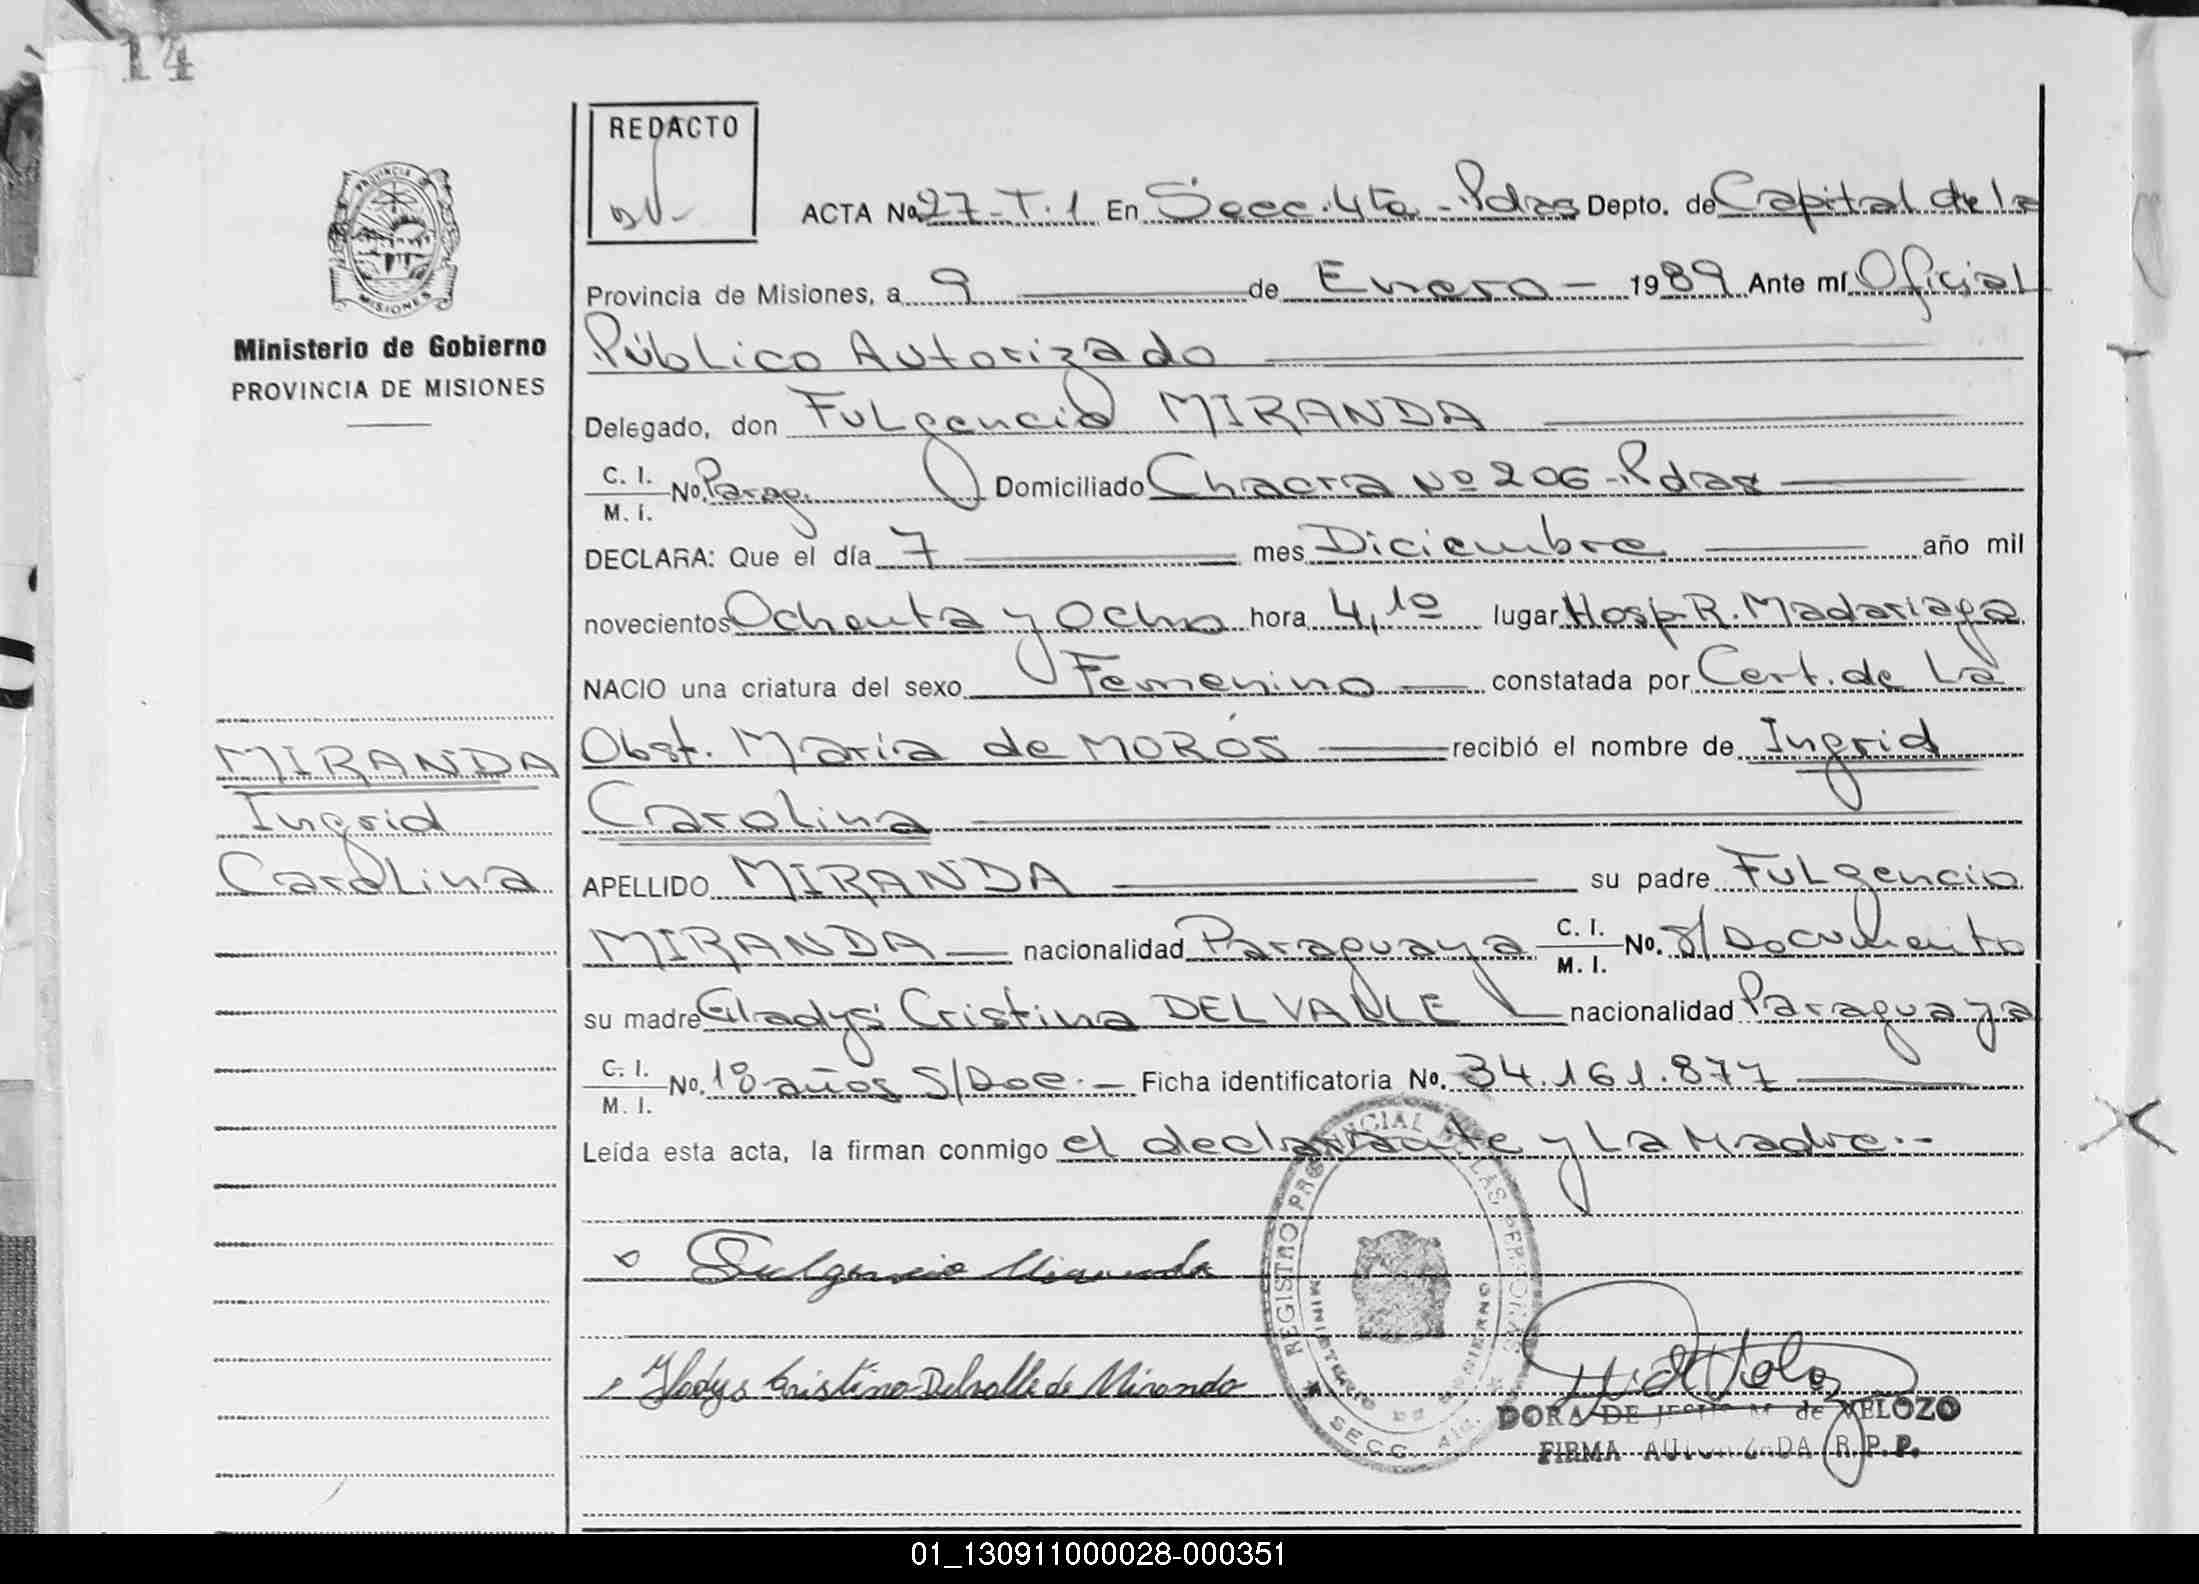 14
REDACTO
ACTA No. 27-T.1 En Secc. 4ta - Pdas Depto. de Capital de la
Provincia de Misiones, a 9 de Enero - 1989 Ante mí Oficial
Ministerio de Gobierno
PROVINCIA DE MISIONES
Público Autorizado
Delegado, don Fulgencio MIRANDA
C. I.
M. I.
No. Parag. Domiciliado Chacra Nº 206 - Pdas
DECLARA: Que el día 7 mes Diciembre año mil
novecientos Ochenta y Ocho hora 4,10 lugar Hosp. R. Madariaga
NACIO una criatura del sexo Femenino constatada por Cert. de La
Obst. María de MORÓS recibió el nombre de Ingrid
Carolina
MIRANDA
Ingrid
Carolina
APELLIDO MIRANDA su padre Fulgencio
MIRANDA nacionalidad Paraguaya C. I. M. I. No. S/Documento
su madre Gladys Cristina DELVALLE nacionalidad Paraguaya
C. I.
M. I.
No. 18 años S/Doc. - Ficha identificatoria No. 34.161.877
Leída esta acta, la firman conmigo el declarante y La Madre.-
Fulgencio Miranda
Gladys Cristina Delvalle de Miranda
REGISTRO PROVINCIAL DE LAS PERSONAS
MINISTERIO DE GOBIERNO
SECC.
DORA DE JESUS M. de VELOZO
FIRMA AUTORIZADA R.P.P.
PROVINCIA DE
MISIONES
01_130911000028-000351